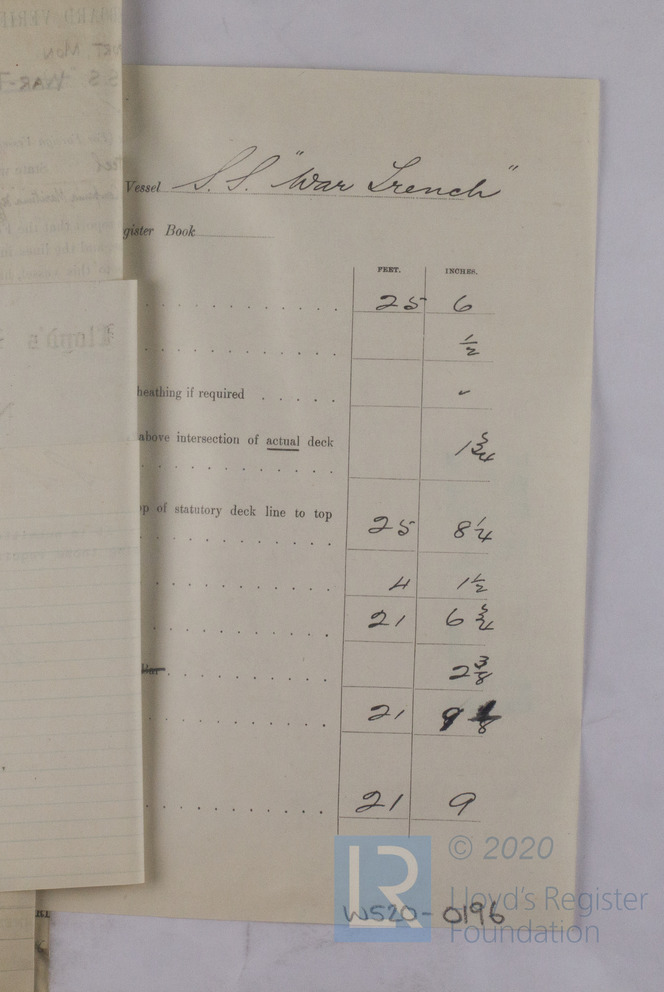 Vessel S.S. "War Trench"
gister Book
FEET. INCHES.
25 6
½
heathing if required
above intersection of actual deck
1¾
op of statutory deck line to top
25 8¼
4 1½
21 6¾
2⅜
21 9⅛
21 9
LR
© 2020
Lloyd's Register
Foundation
WS20-0196